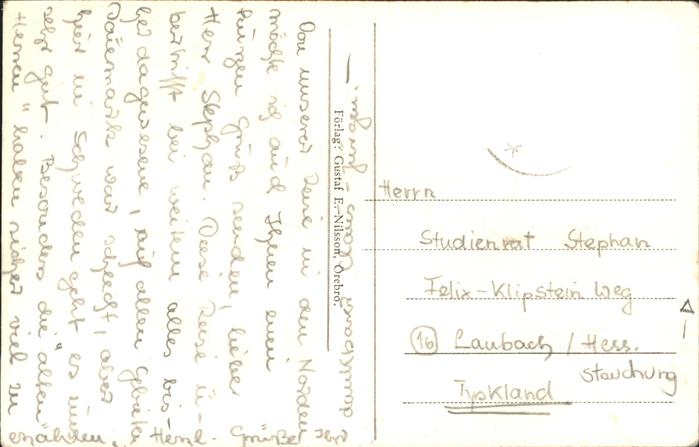 Von unserer Reise in den Norden
möchte ich auch Ihnen einen
kurzen Gruß senden, lieber
Herr Stephan. Diese Reise ü-
bertrifft bei weitem alles bis-
her dagewesene, auf allen Gebieten
Dänemark war schlecht, aber
hier in Schweden geht es uns
sehr gut. Besonders die "alten
Herren" haben sicher viel zu
erzählen. Herzl. Grüße Ihr
Förlag: Gustaf E. Nilsson, Örebro.
Herrn
Studienrat Stephan
Felix-Klipstein Weg
(16) Laubach / Hess.
Stauchung
Tyskland